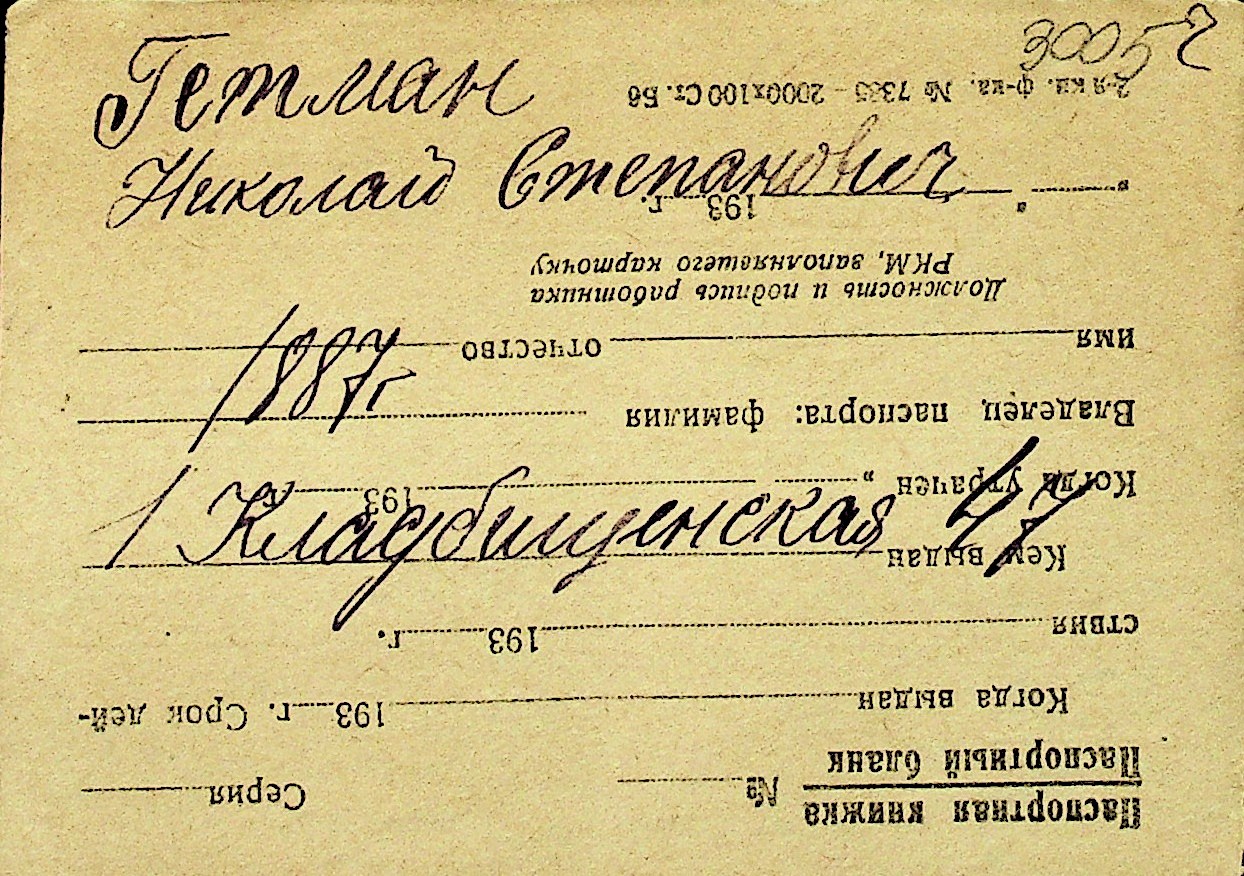 30052
Гетман
Николай Степанович
1887г
1 Кладбищенская 47
Паспортная книжка
Паспортный бланк № Серия
Когда выдан 193 г. Срок дей-
ствия 193 г.
Кем выдан
Когда утрачен „ 193 г.
Владелец паспорта: фамилия
имя отчество
Должность и подпись работника
РКМ, заполнявшего карточку
" " 193 г.
2-я кн. ф-ка. № 7385 – 2000х100 Ст. Бб